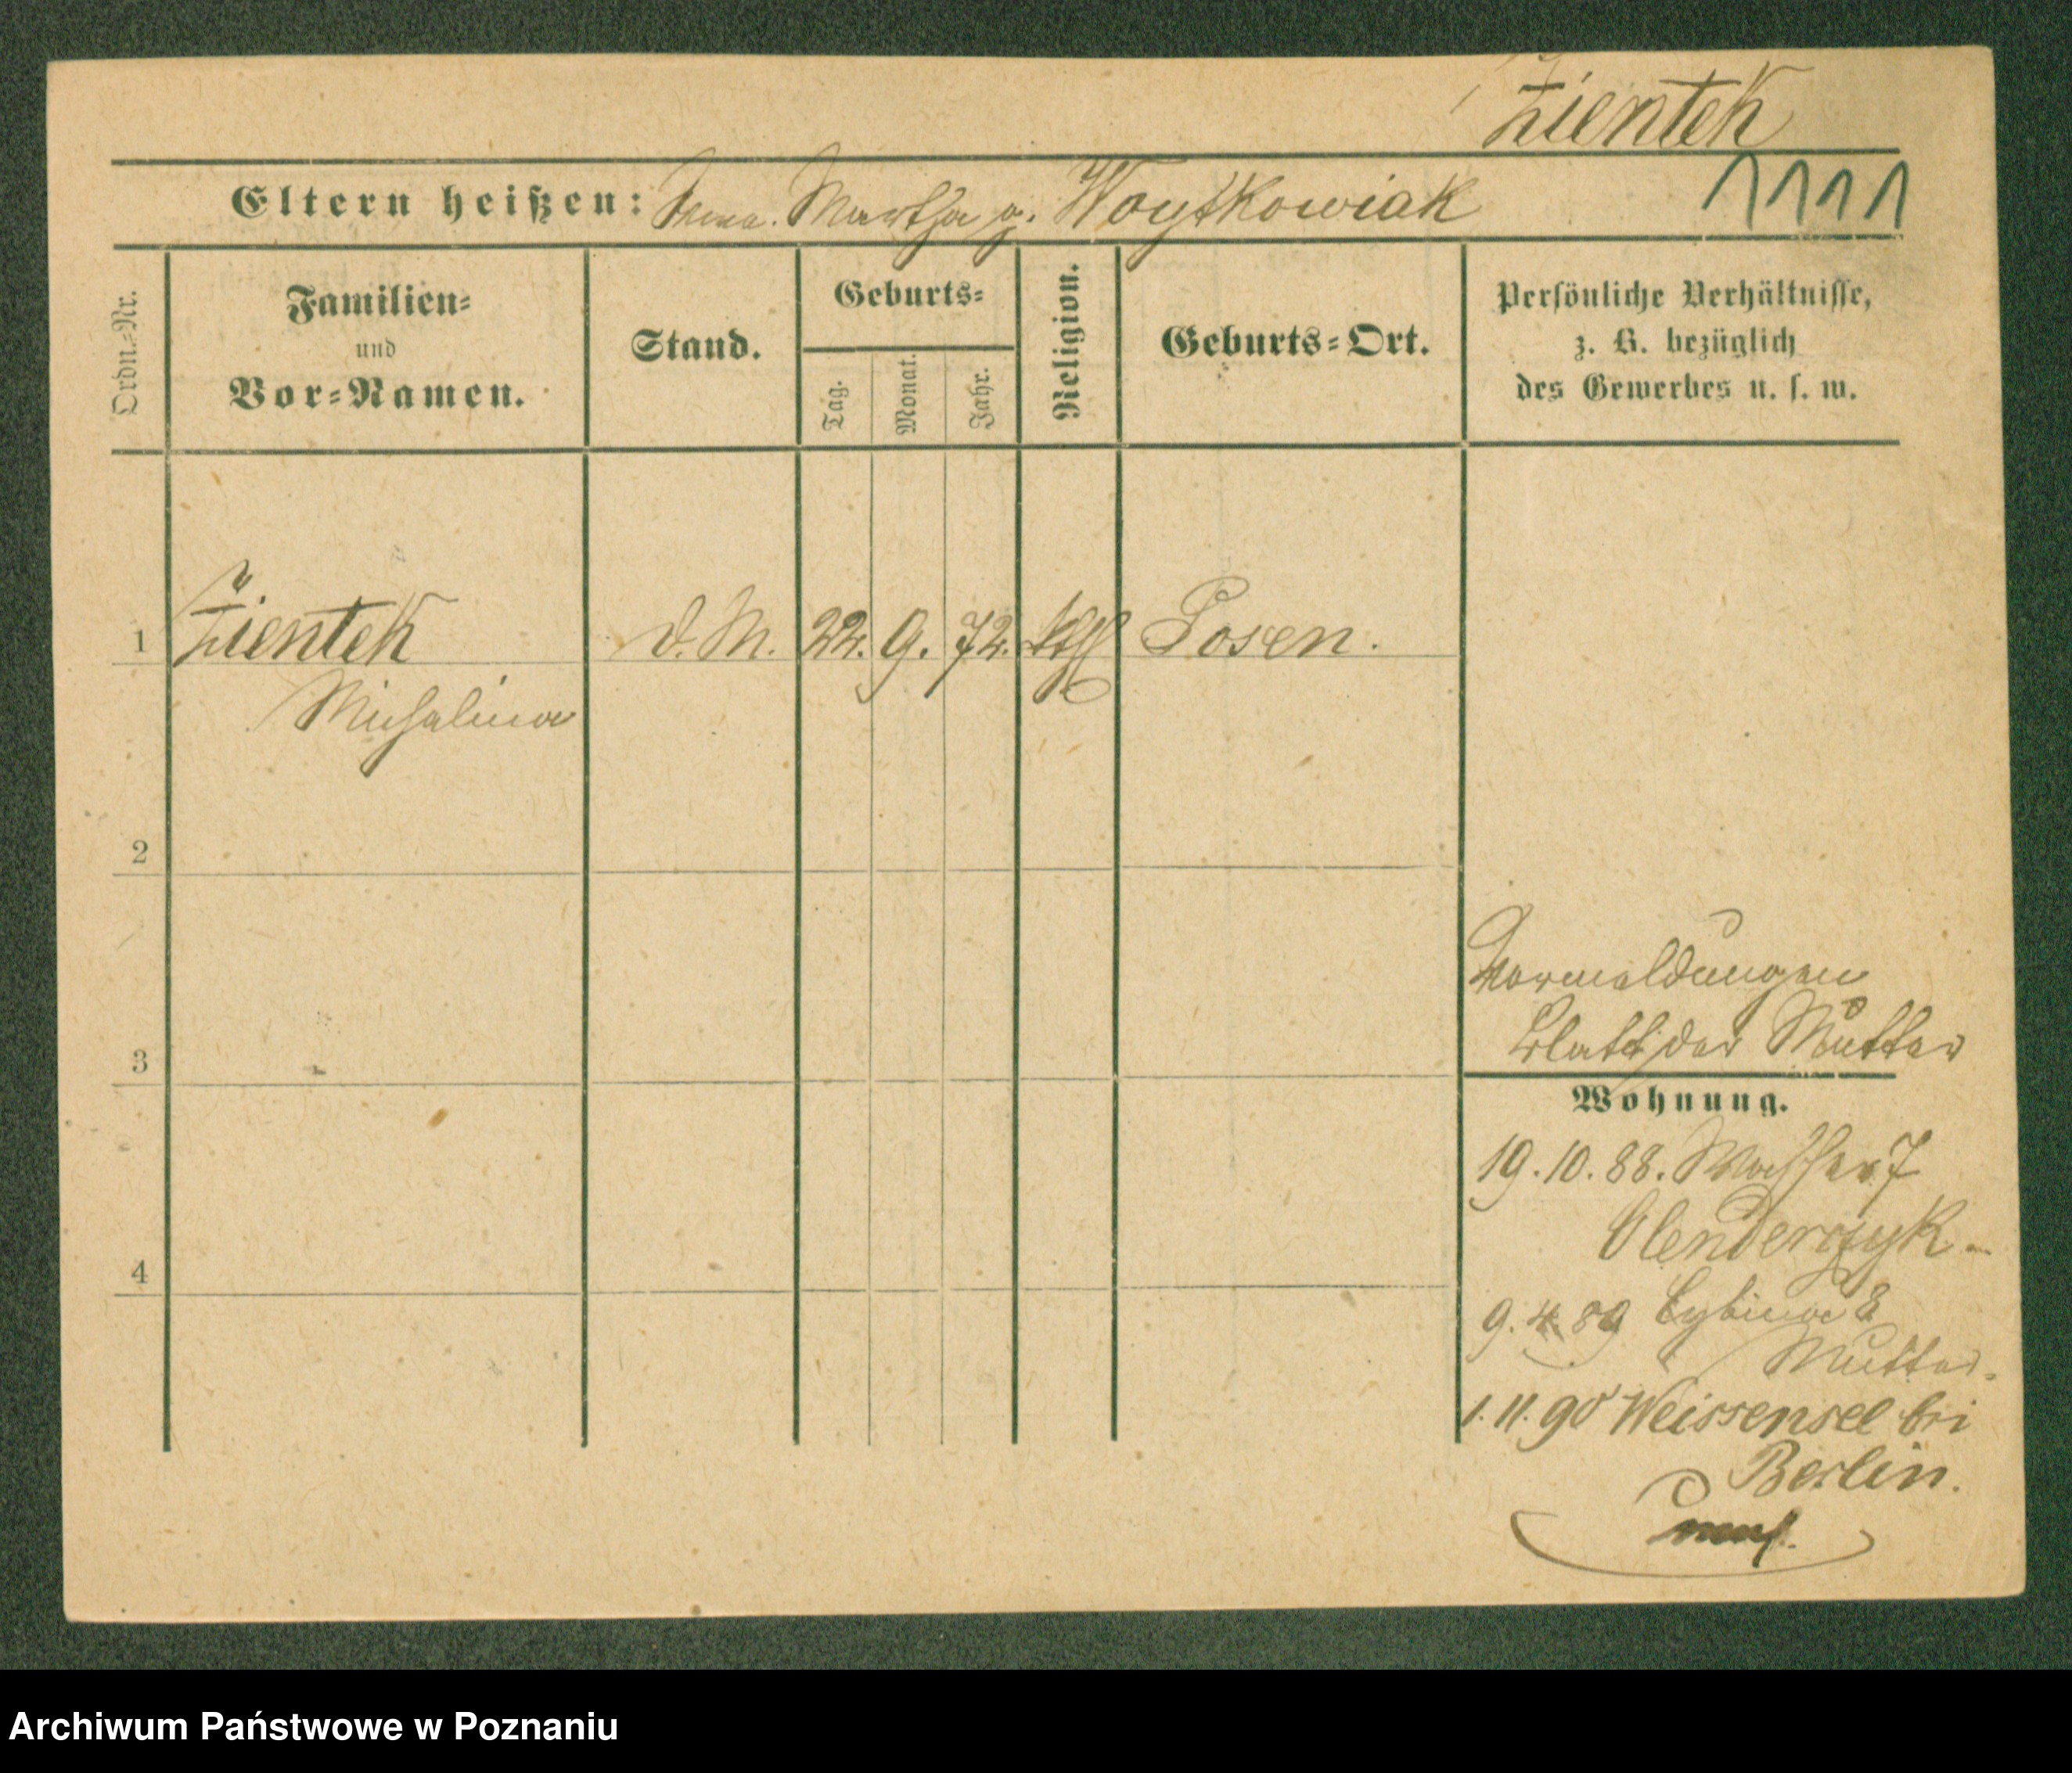 Zientek
1111
Eltern heißen: Martha g. Woytkowiak
Ordn.-Nr.
Familien-
und
Vor-Namen.
Stand.
Geburts-
Tag.
Monat.
Jahr.
Religion.
Geburts-Ort.
Persönliche Verhältnisse,
z. B. bezüglich
des Gewerbes u. s. w.
1 Zientek d. M. 22. 9. 72. kth Posen.
Michalina
2
3
4
Vormeldungen
Blatt der Mutter
Wohnung.
19. 10. 88. 7
Olenderczyk
9. 4. 89 Cybina 8
Mutter.
1. 11. 90 Weissensee bei
Berlin.
Archiwum Państwowe w Poznaniu